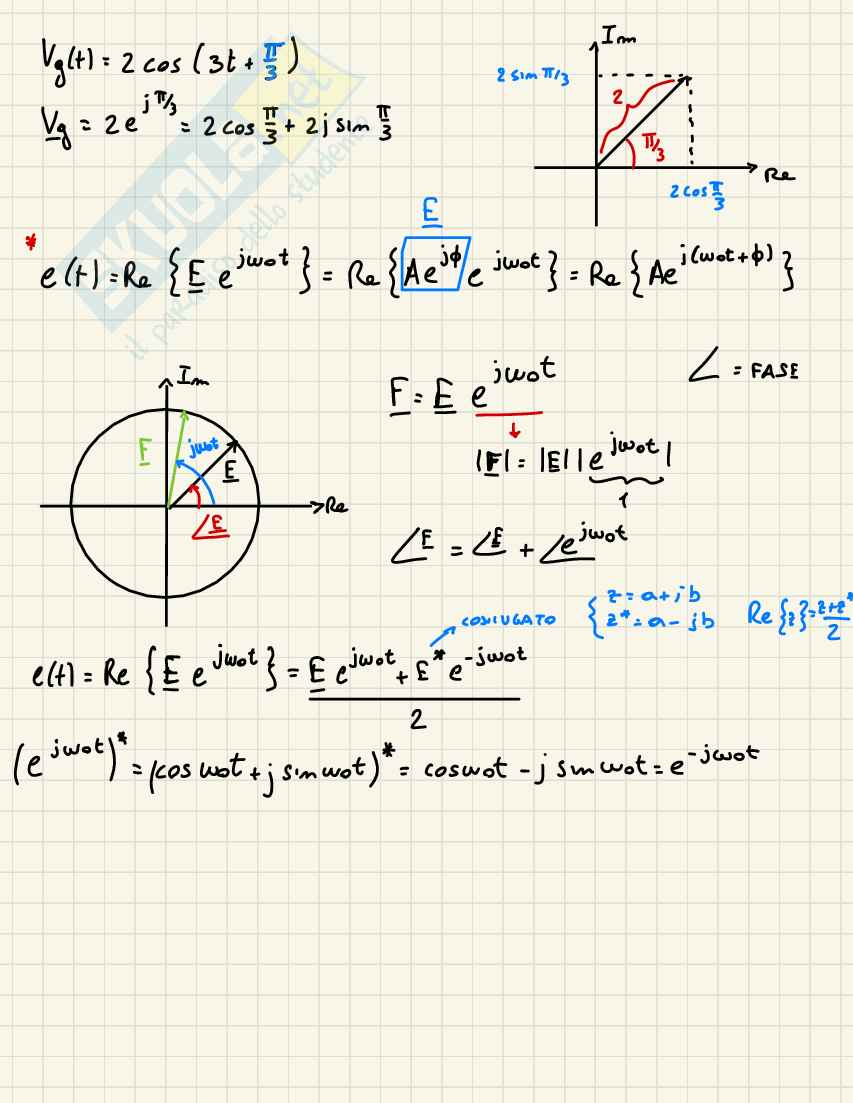 Vg(t) = 2 cos (3t + π/3)
Vg = 2 e^{jπ/3} = 2 cos π/3 + 2j sin π/3
Im
2 sin π/3
2
π/3
Re
2 cos π/3
SKUOLA.net
il paradiso dello studente
E
* e(t) = Re {E e^{jω₀t}} = Re {A e^{jϕ} e^{jω₀t}} = Re {A e^{j(ω₀t+ϕ)}}
Im
F
jω₀t
E
Re
∠E
F = E e^{jω₀t}
∠ = FASE
|F| = |E| |e^{jω₀t}|
1
∠F = ∠E + ∠e^{jω₀t}
CONIUGATO
{ z = a + jb
z* = a - jb
Re {z} = z+z*/2
e(t) = Re {E e^{jω₀t}} = E e^{jω₀t} + E* e^{-jω₀t} / 2
(e^{jω₀t})* = (cos ω₀t + j sin ω₀t)* = cos ω₀t - j sin ω₀t = e^{-jω₀t}